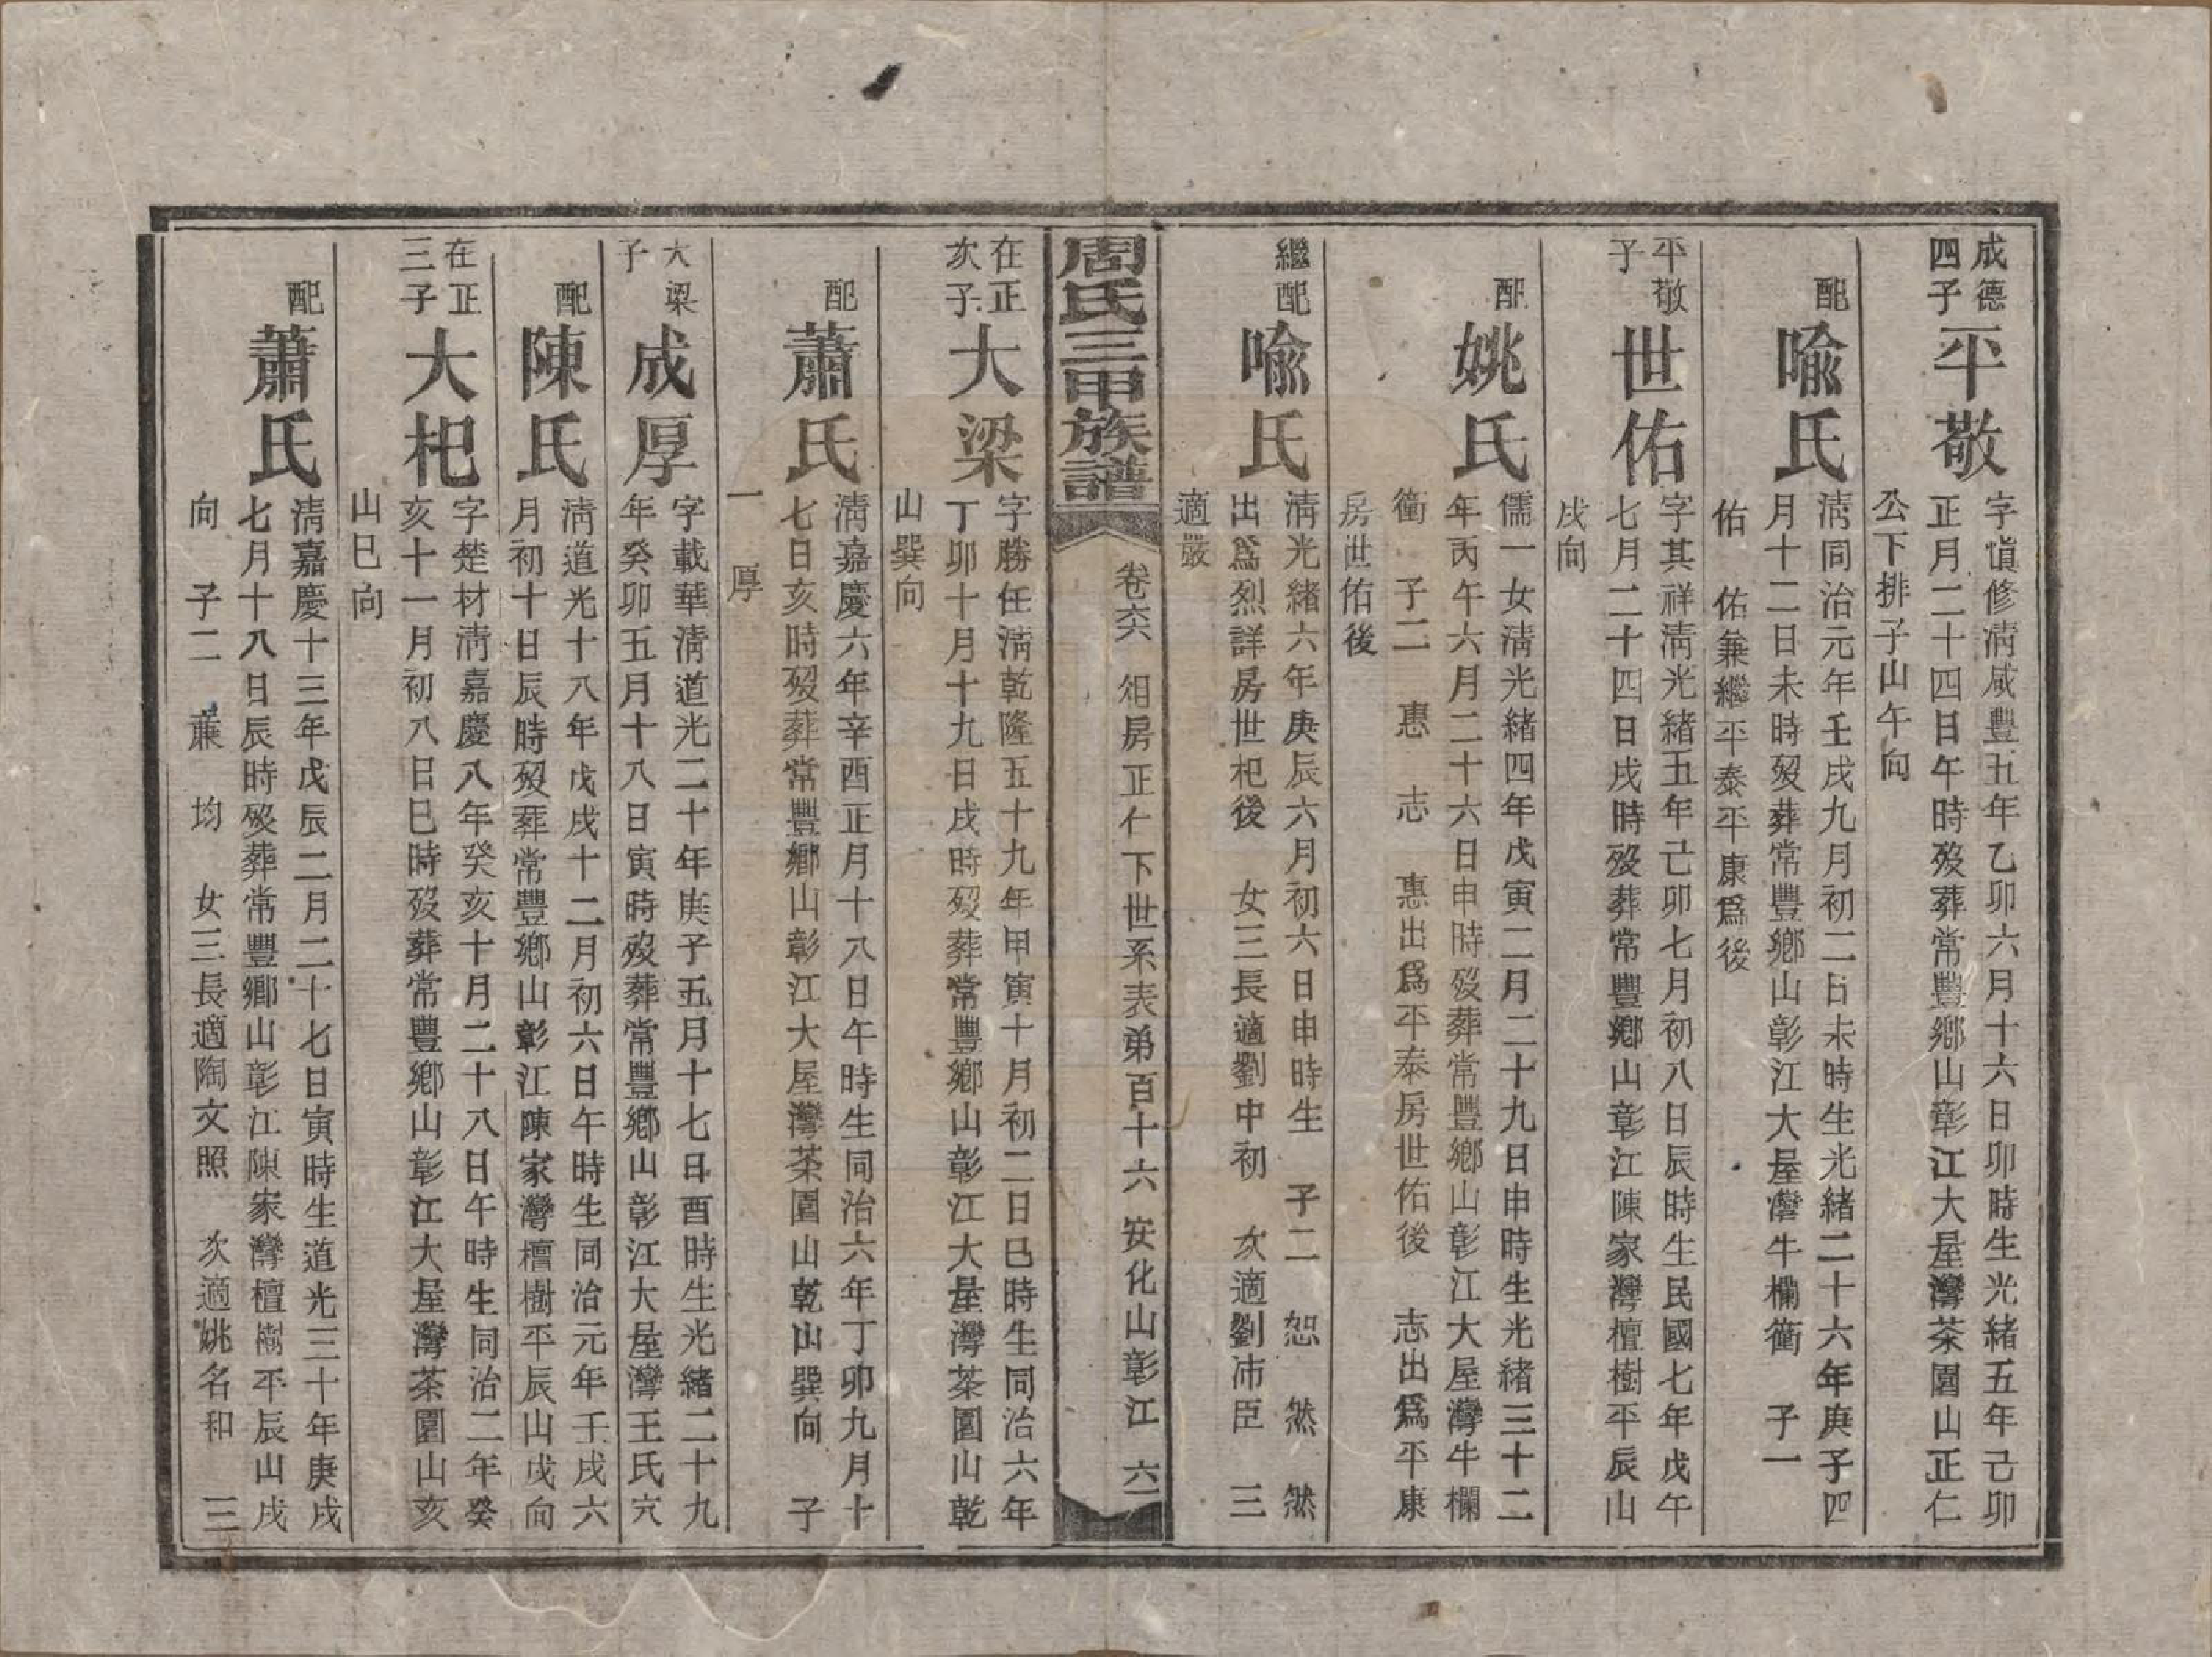 成德
四子
平敬
字愼修淸咸豐五年乙卯六月十六日卯時生光緒五年己卯
正月二十四日午時歿葬常豐鄉山彰江大屋灣茶園山正仁
公下排子山午向
配
喩氏
淸同治元年壬戌九月初二日未時生光緒二十六年庚子四
月十二日未時歿葬常豐鄉山彰江大屋灣牛欄衝 子一
佑 佑兼繼平泰平康爲後
平敬
子
世佑
字其祥淸光緒五年己卯七月初八日辰時生民國七年戊午
七月二十四日戌時歿葬常豐鄉山彰江陳家灣檀樹平辰山
戌向
配
姚氏
儒一女淸光緒四年戊寅二月二十九日申時生光緒三十二
年丙午六月二十六日申時歿葬常豐鄉山彰江大屋灣牛欄
衝 子二 惠 志 惠出爲平泰房世佑後 志出爲平康
房世佑後
繼配
喩氏
淸光緒六年庚辰六月初六日申時生 子二 恕 然 然
出爲烈詳房世杞後 女三長適劉中初 次適劉沛臣 三
適嚴
周氏三甲族譜
卷六 俎房正仁下世系表弟百十六 安化山彰江 六一
在正
次子
大梁
字勝任淸乾隆五十九年甲寅十月初二日巳時生同治六年
丁卯十月十九日戌時歿葬常豐鄉山彰江大屋灣茶園山乾
山巽向
配
蕭氏
淸嘉慶六年辛酉正月十八日午時生同治六年丁卯九月十
七日亥時歿葬常豐鄉山彰江大屋灣茶園山乾山巽向 子
一 厚
大梁
子
成厚
字載華淸道光二十年庚子五月十七日酉時生光緒二十九
年癸卯五月十八日寅時歿葬常豐鄉山彰江大屋灣王氏穴
配
陳氏
淸道光十八年戊戌十二月初六日午時生同治元年壬戌六
月初十日辰時歿葬常豐鄉山彰江陳家灣檀樹平辰山戌向
在正
三子
大杞
字楚材淸嘉慶八年癸亥十月二十八日午時生同治二年癸
亥十一月初八日巳時歿葬常豐鄉山彰江大屋灣茶園山亥
山巳向
配
蕭氏
淸嘉慶十三年戊辰二月二十七日寅時生道光三十年庚戌
七月十八日辰時歿葬常豐鄉山彰江陳家灣檀樹平辰山戌
向 子二 㢘 均 女三長適陶文照 次適姚名和 三